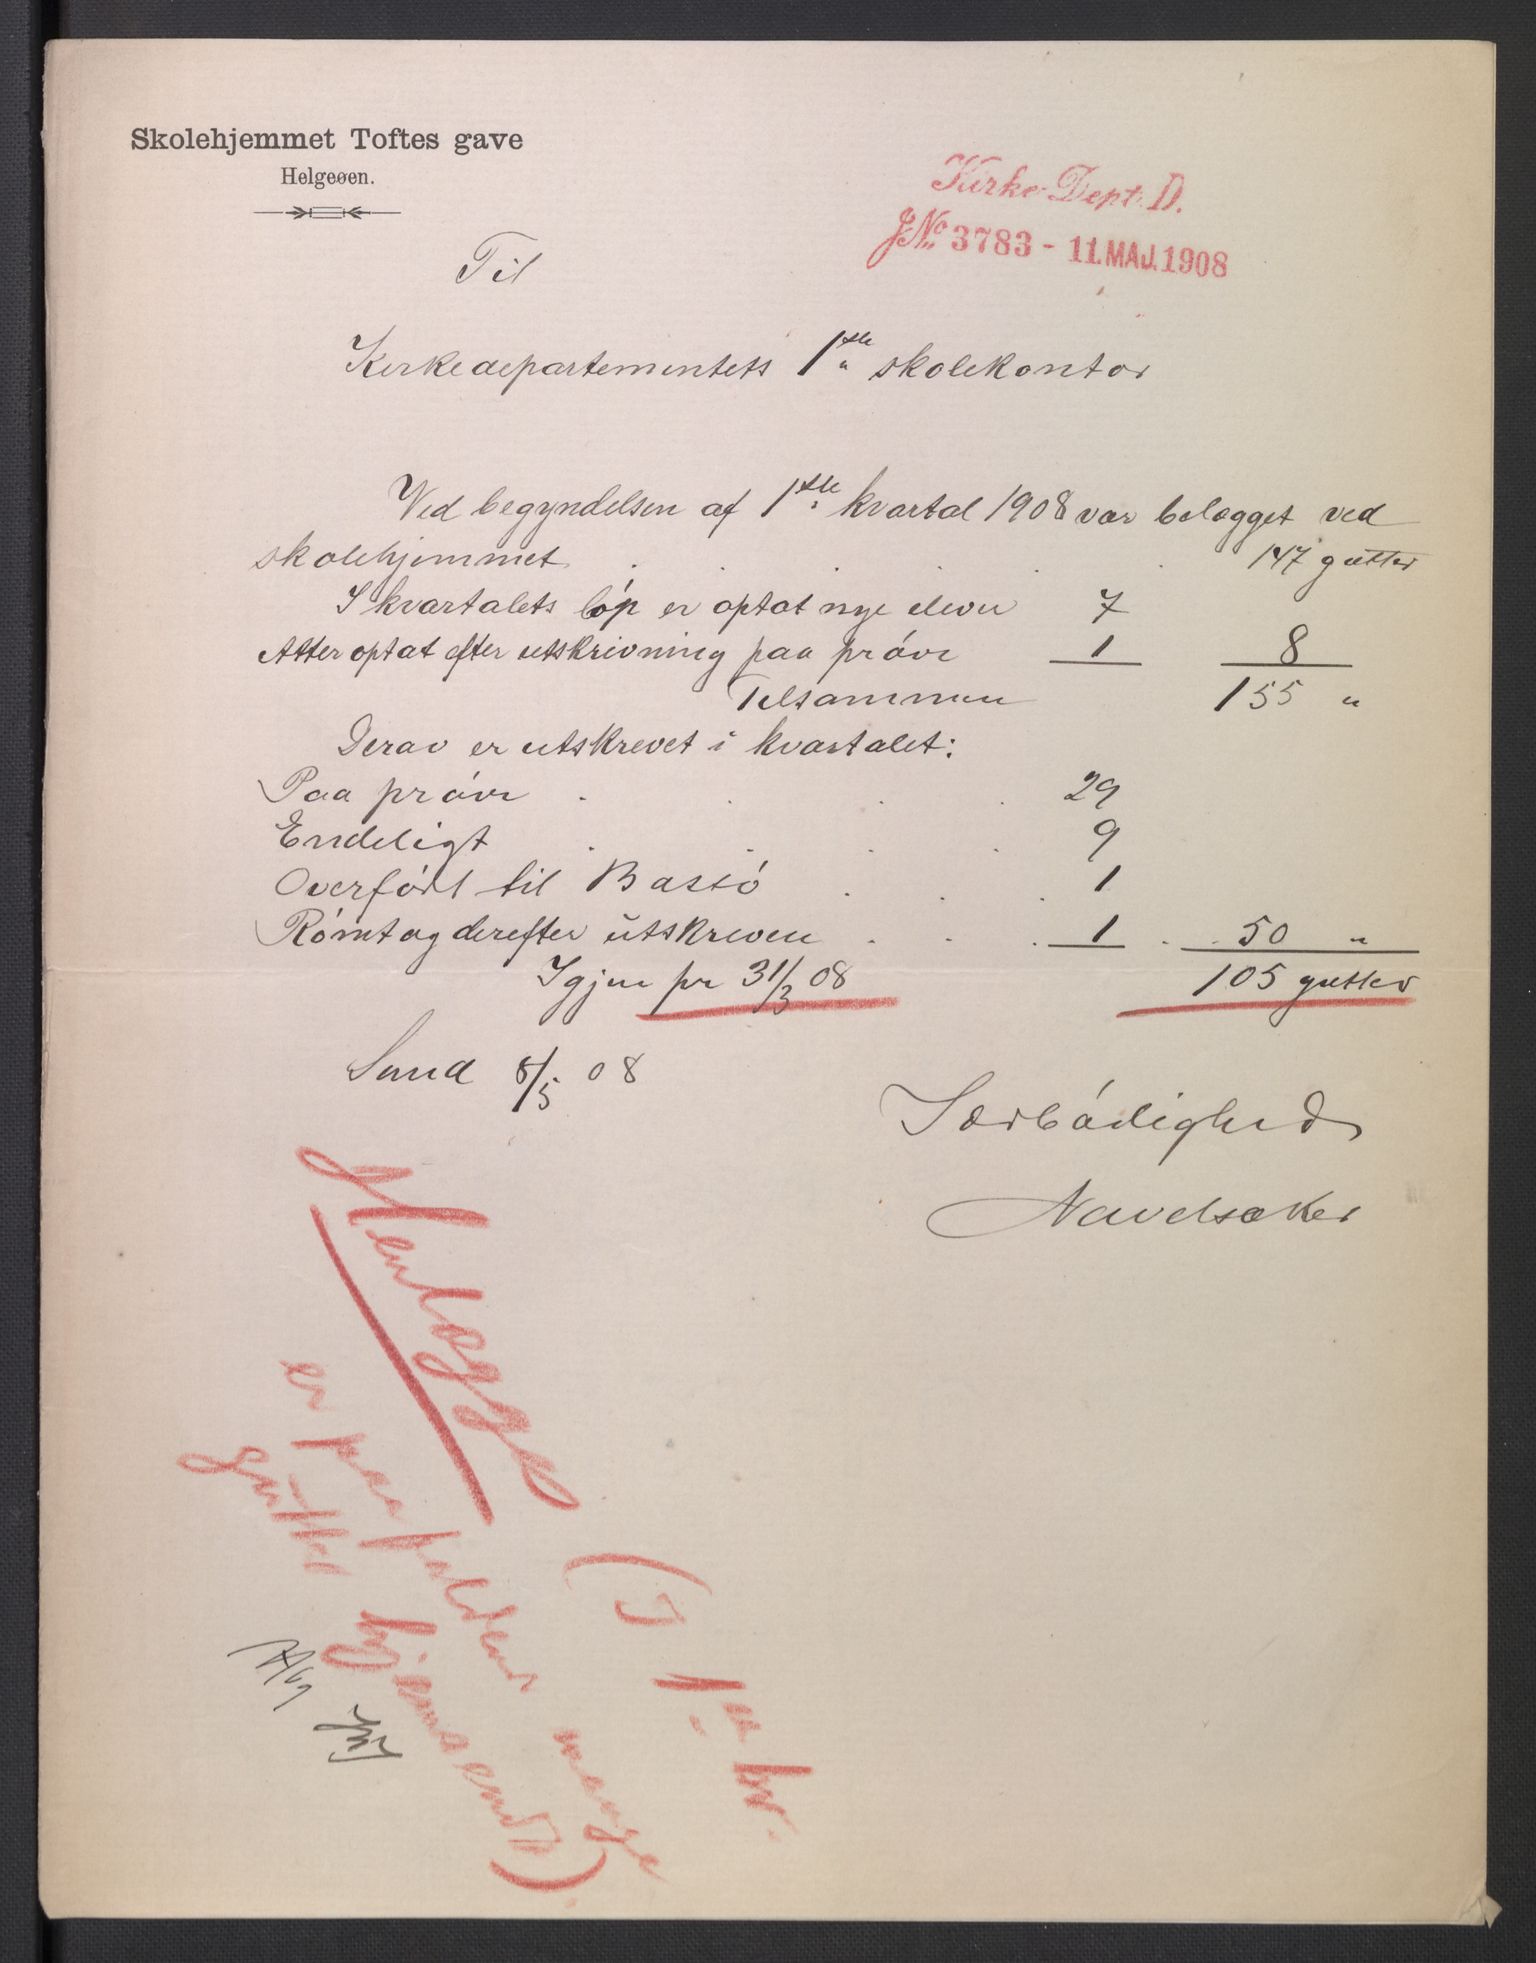 Skolehjemmet Toftes gave
Helgeøen.
Kirke-Dept. D.
JNo 3783 - 11. MAJ. 1908
Til
Kirkedepartementets 1ste skolekontor
Ved begyndelsen af 1ste kvartal 1908 var belægget ved
skolehjemmet . . . . 147 gutter
I kvartalets løp er optat nye elever 7
Atter optat efter utskrivning paa prøve 1 8
Tilsammen 155 "
Derav er utskrevet i kvartalet:
Paa prøve . . . . 29
Endeligt . . . . 9
Overført til Bastø . . . 1
Rømt og derefter utskreven . . . 1 . . 50 "
Igjen pr 31/3 08 105 gutter
Sund 8/5 08
Ærbødighed
Navelsaker
Henlægge
(I 1ste kv.
er paafaldende mange
gutter hjemsendt).